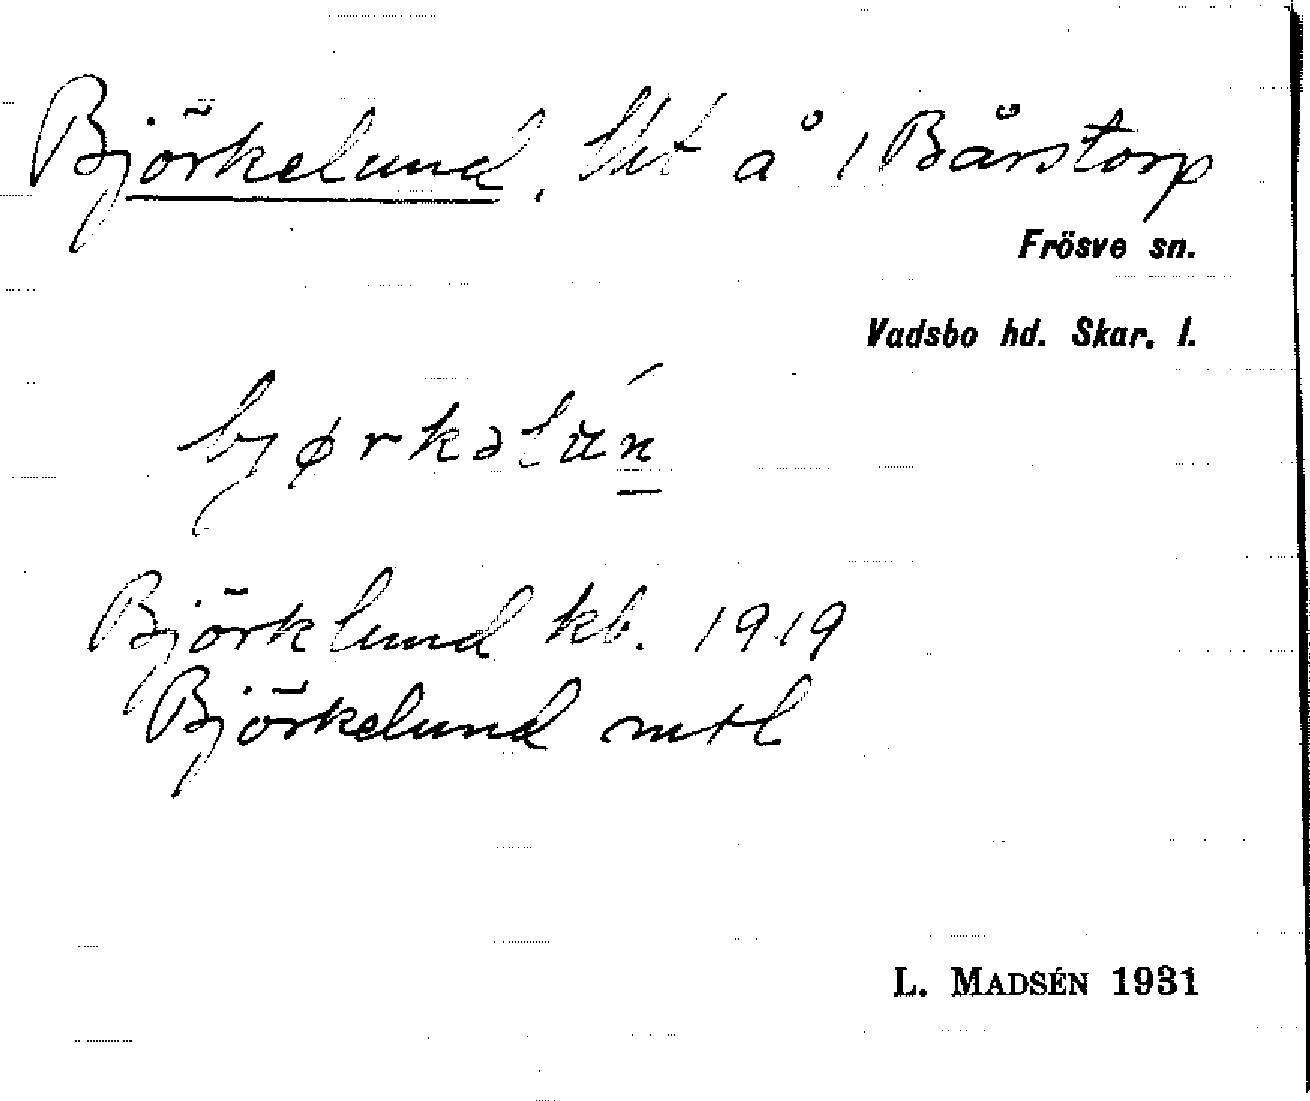 Björkelund, lht å 1 Bårstorp
Frösve sn.
Vadsbo hd. Skar. l.
bjørkəlún
Björklund kb. 1919
Björkelund mtl
L. MADSÉN 1931